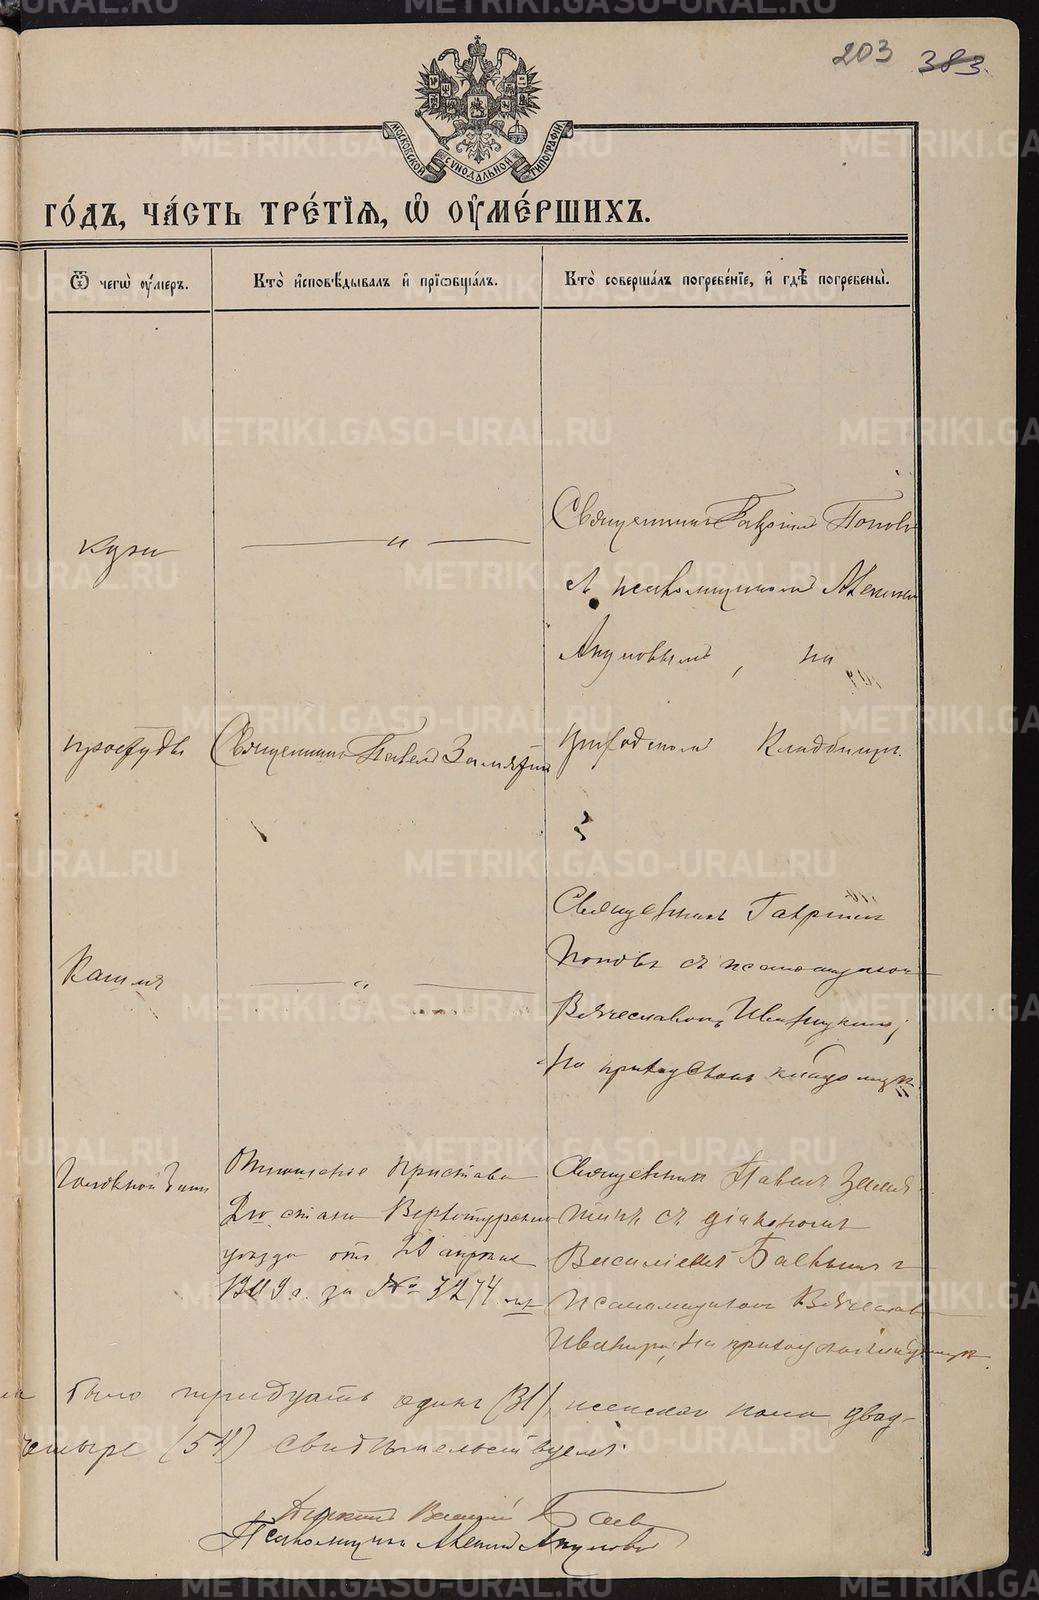 203 383.
МОСКОВСКОЙ СѴНОДАЛЬНОЙ ТИПОГРАФІИ.
ГО́ДЪ, ЧА́СТЬ ТРЕ́ТІѦ, Ѡ҆ ОУ҆МЕ́РШИХЪ.
Ѿ чегѡ̀ ᲂу҆́меръ.
Кто̀ и҆сповѣ́дывалъ и҆ прїѡбща́лъ.
Кто̀ соверша́лъ погребе́нїе, и҆ гдѣ̀ погребены̀.
Священникъ Гавріилъ Поповъ
съ псаломщикомъ
Акуловымъ, на
приходскомъ кладбищѣ.
простуды
Священникъ Павелъ Замятинъ
Кашля
Священникъ Гавріилъ
Поповъ съ псаломщикомъ
Вячеславомъ Ивановскимъ,
на приходскомъ кладбищѣ
Отношеніе Пристава
2го стана Верхотурскаго
уѣзда отъ апрѣля
за № 3274
Священникъ Павелъ Замя-
тинъ съ діакономъ
Василіемъ Баевымъ и
псаломщикомъ Вячеславомъ
на приходскомъ кладбищѣ
было тридцать одинъ (31), женскаго пола двад-
четыре (54) свидѣтельствуемъ:
Діаконъ Василій Баевъ
Псаломщикъ Акуловъ
METRIKI.GASO-URAL.RU